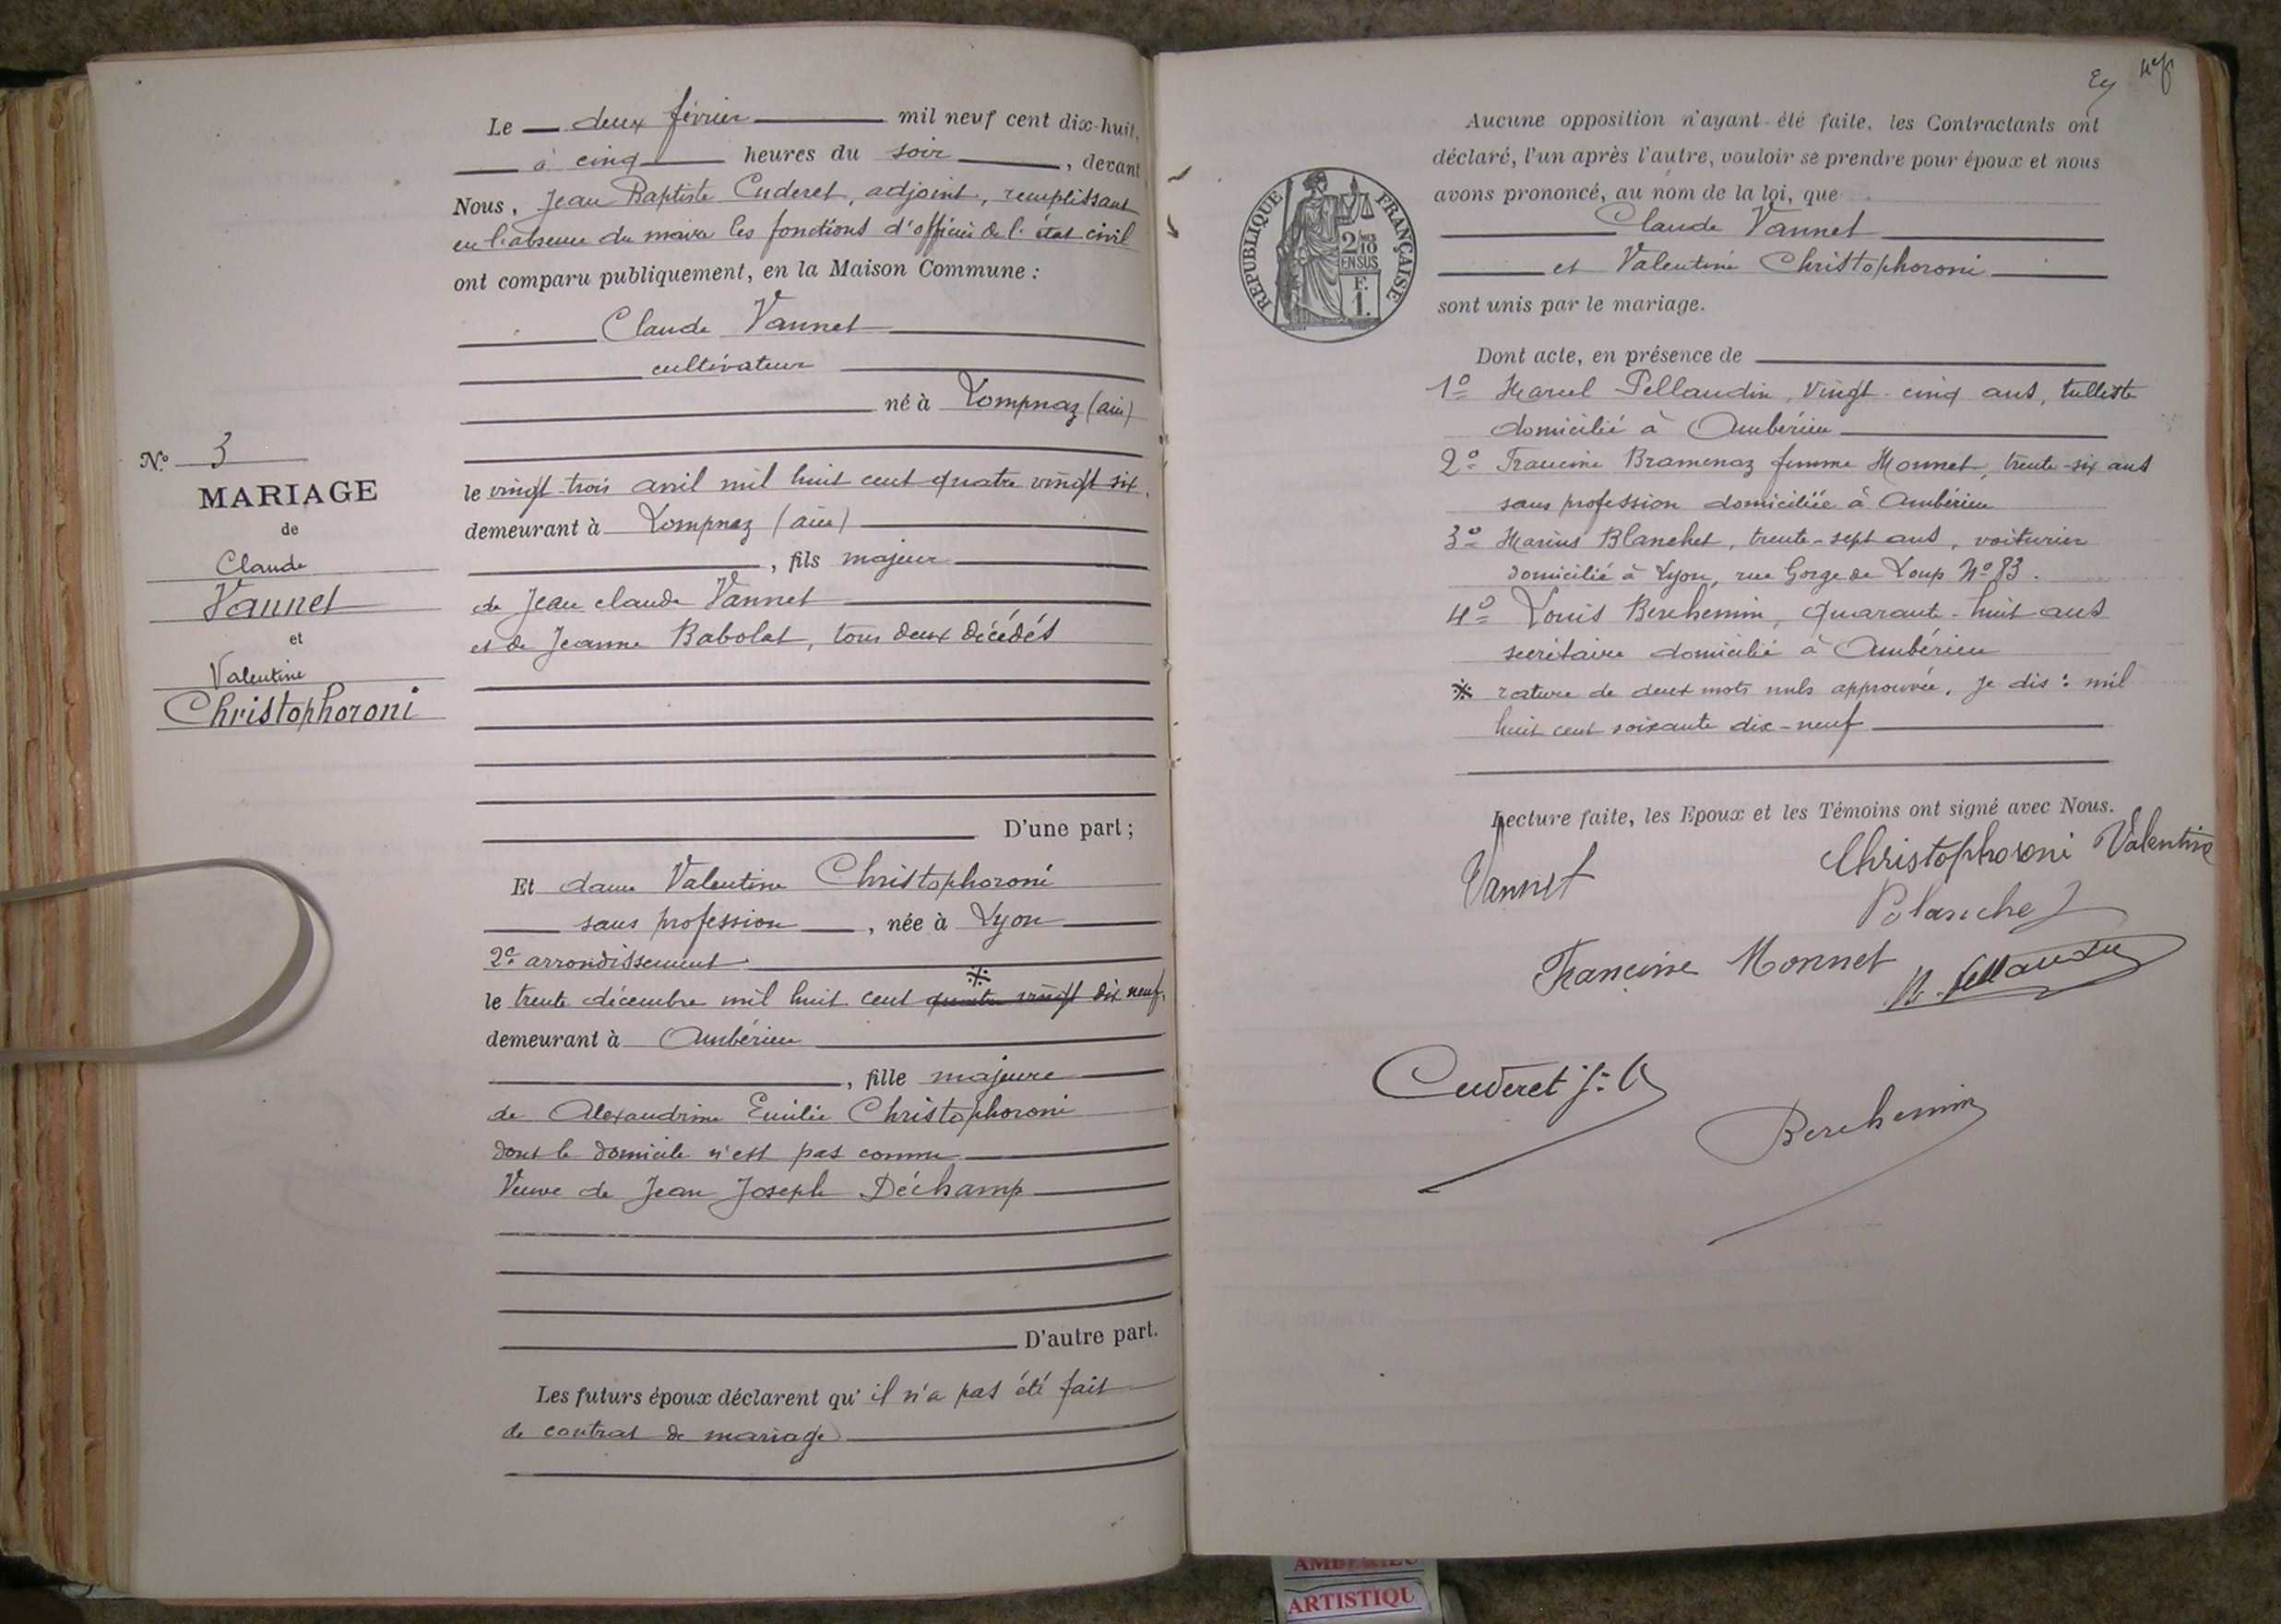 Le deux février mil neuf cent dix-huit,
à cinq heures du soir, devant
Nous, Jean Baptiste Cuderet, adjoint, remplissant
en l'absence du maire les fonctions d'officier de l'état civil
ont comparu publiquement, en la Maison Commune :
Claude Vannet
cultivateur
né à Lompnaz (ain)
le vingt-trois avril mil huit cent quatre vingt six,
demeurant à Lompnaz (ain)
, fils majeur
de Jean claude Vannet
et de Jeanne Babolat, tous deux décédés
D'une part ;
N° 3
MARIAGE
de
Claude
Vannet
et
Valentine
Christophoroni
Et dame Valentine Christophoroni
sans profession, née à Lyon
2e arrondissement
※
le trente décembre mil huit cent quatre vingt dix neuf,
demeurant à Ambérieu
, fille majeure
de Alexandrine Emilie Christophoroni
dont le domicile n'est pas connu
Veuve de Jean Joseph Déchamp
D'autre part.
Les futurs époux déclarent qu'il n'a pas été fait
de contrat de mariage
Aucune opposition n'ayant été faite, les Contractants ont
déclaré, l'un après l'autre, vouloir se prendre pour époux et nous
avons prononcé, au nom de la loi, que
Claude Vannet
et Valentine Christophoroni
sont unis par le mariage.
RÉPUBLIQUE FRANÇAISE
2/10
EN SUS
F.
1.
Dont acte, en présence de
1° Marcel Pellaudin, vingt-cinq ans, tulliste
domicilié à Ambérieu
2° Francine Bramenaz femme Monnet, trente-six ans
sans profession domiciliée à Ambérieu
3° Marius Blanchet, trente-sept ans, voiturier
domicilié à Lyon, rue Gorge de Loup N° 83.
4° Louis Berchemin, quarante-huit ans
secrétaire domicilié à Ambérieu
※ rature de deux mots nuls approuvée. Je dis : mil
huit cent soixante dix-neuf
Lecture faite, les Epoux et les Témoins ont signé avec Nous.
Vannet
Christophoroni Valentine
Blanchet
Francine Monnet
M. Pellaudin
Cuderet J. B
Berchemin
AMBERIEU
ARTISTIQU